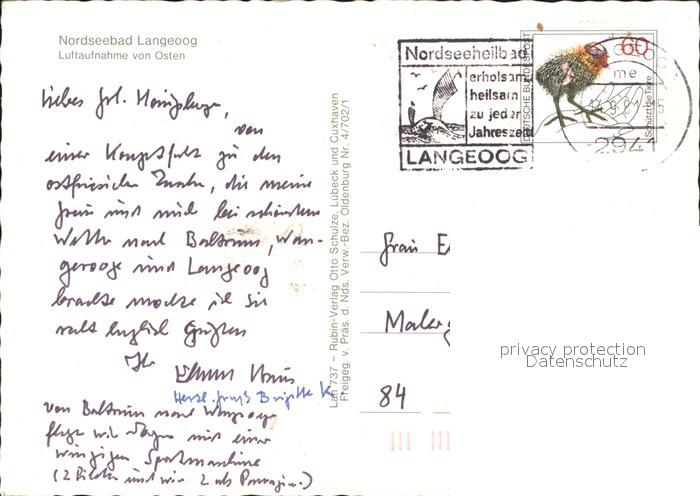 Nordseebad Langeoog
Luftaufnahme von Osten
Nordseeheilbad
erholsam
heilsam
zu jeder
Jahreszeit
LANGEOOG
DEUTSCHE BUNDESPOST
60
Schützt die Tiere
me
2941
Liebes Frl.
von
einer Kampffahrt zu den
ostfriesischen Inseln, die meine
Frau und mich bei schönstem
Wetter nach Baltrum, Wan-
gerooge und Langeoog
brachte möchte ich Sie
recht herzlich Grüßen
Ihr
Herzl. Gruß Brigitte K
von Baltrum nach Wangerooge
flogen wir
mit einer
winzigen Sportmaschine
(2 Piloten und wir 2 als Passagiere)
Lan 737 – Rubin-Verlag Otto Schulze, Lübeck und Cuxhaven
Freigeg. v. Präs. d. Nds. Verw.-Bez. Oldenburg Nr. 4/702/1
Frau
84
privacy protection
Datenschutz